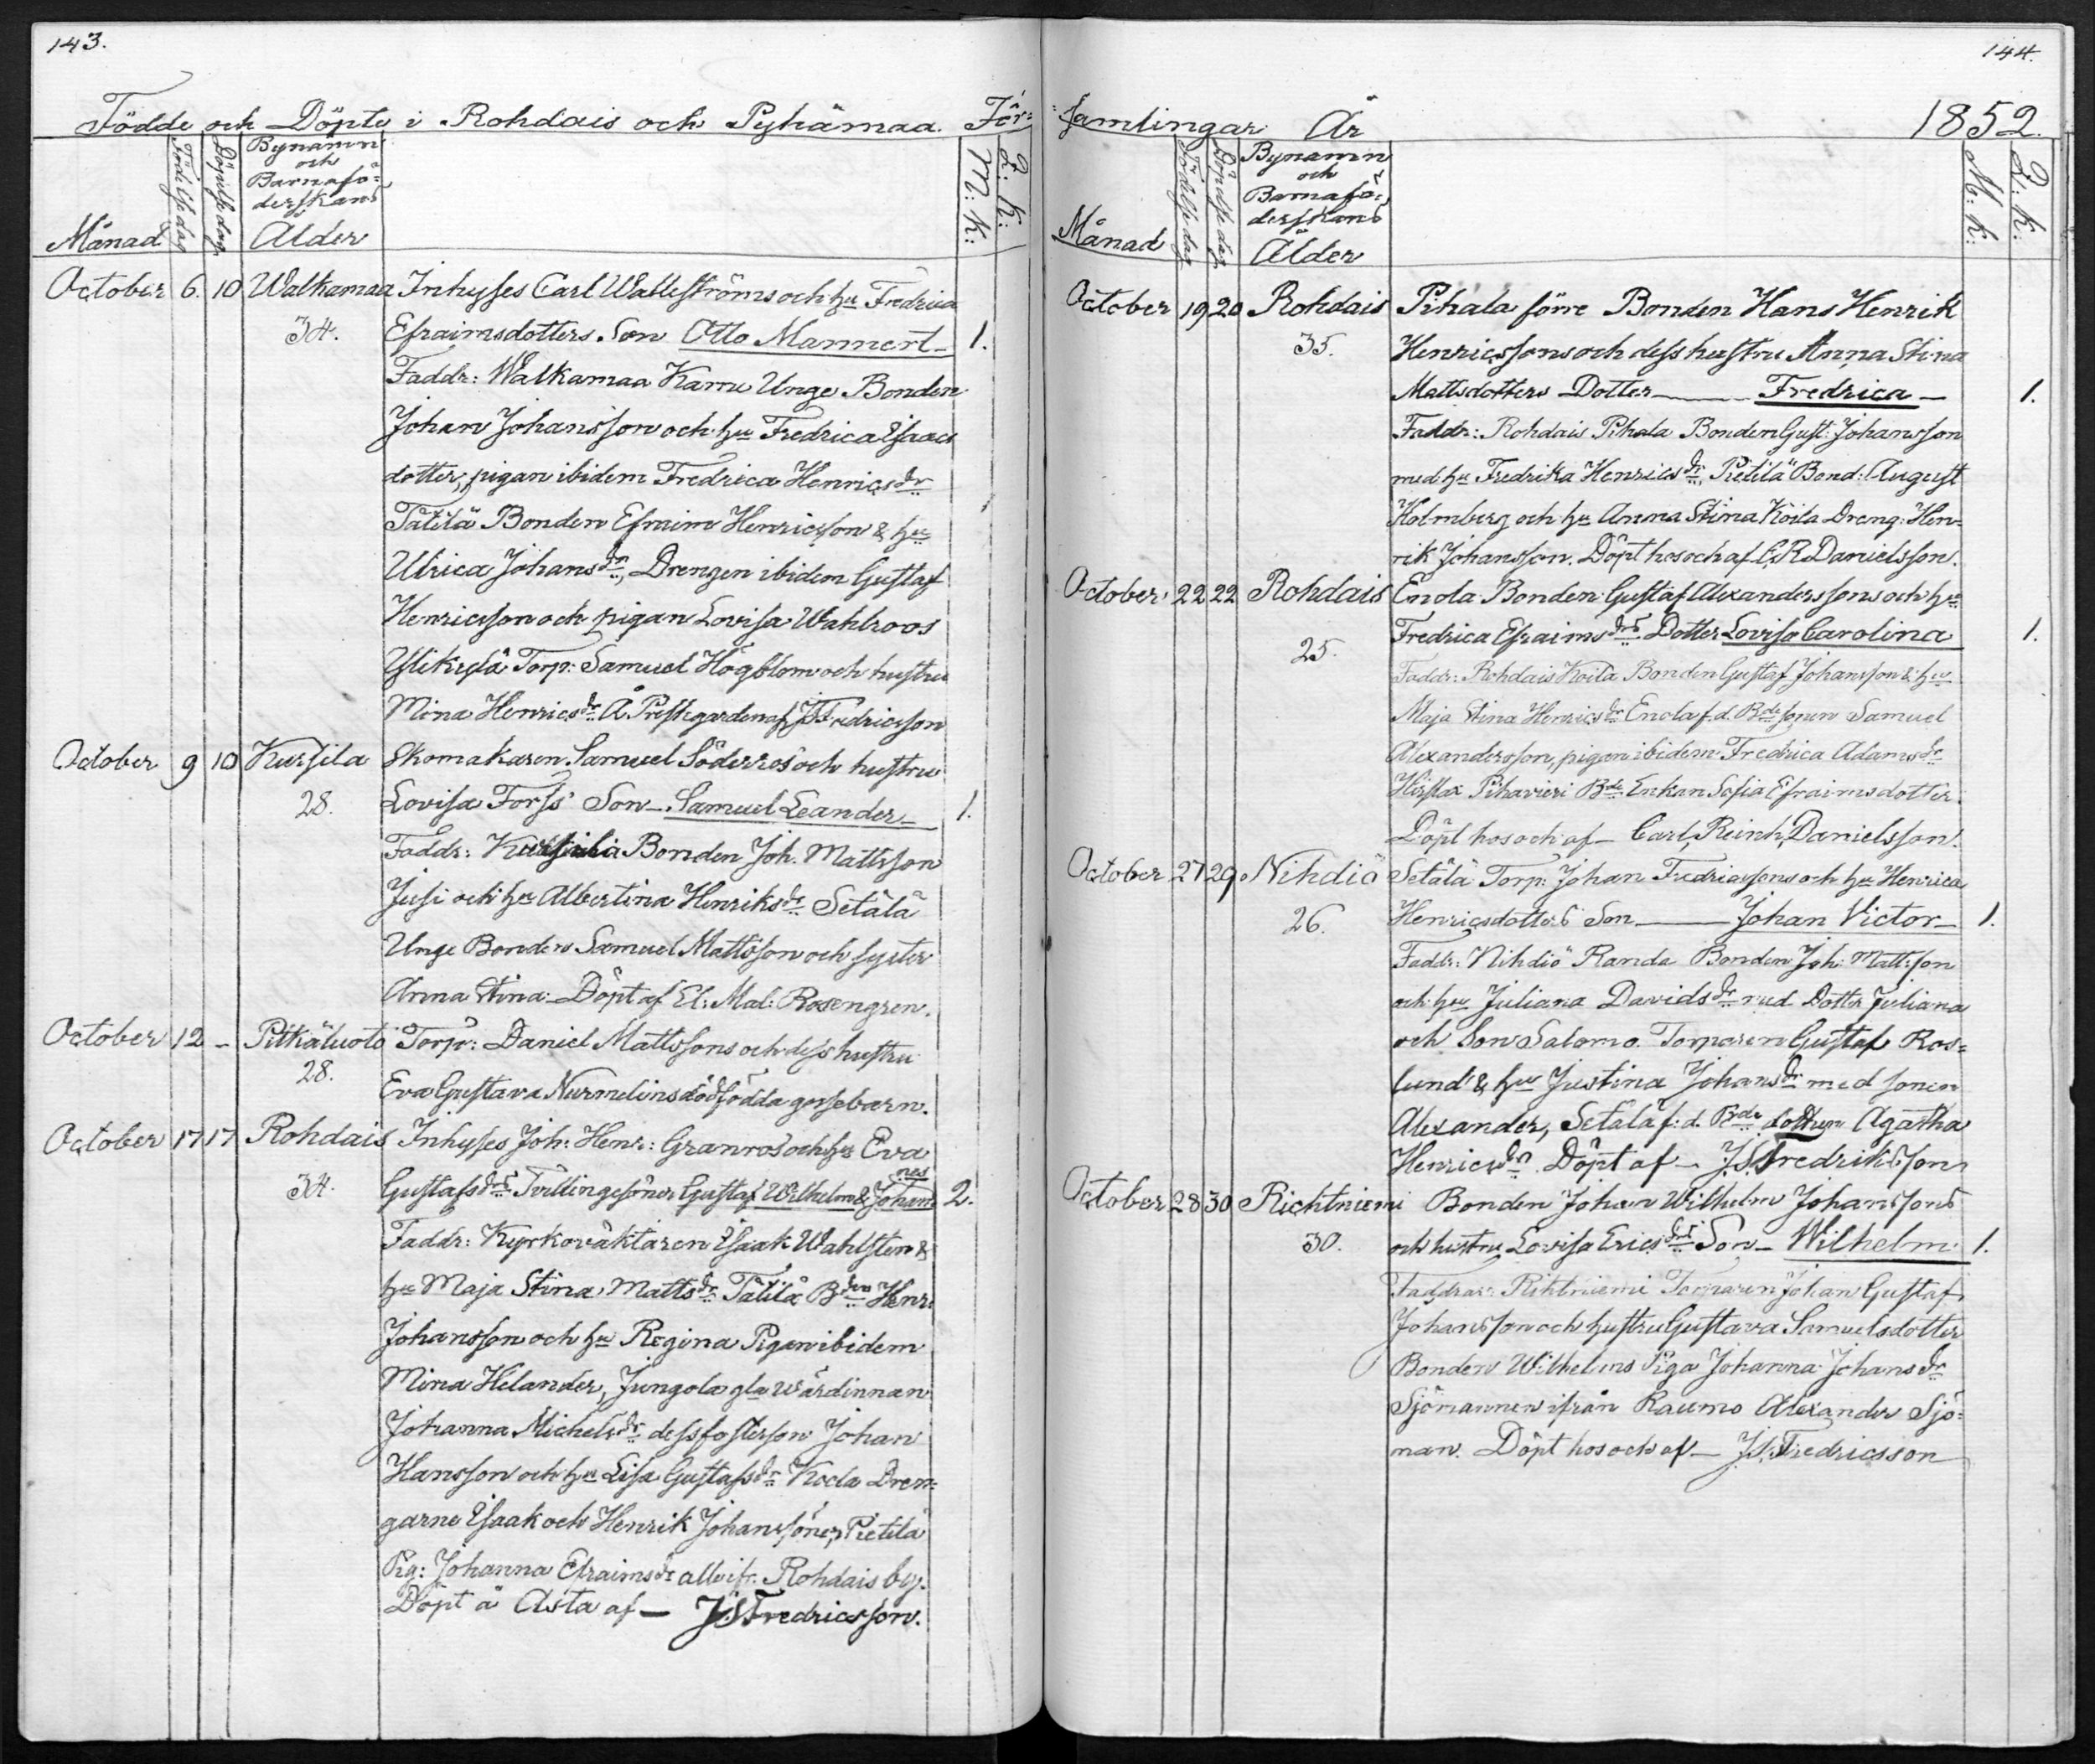 143.
Födde och Döpte i Rohdais och Pyhämaa. För=
Månad
Födelsedag
Döpelsedag
Bynamn
och
Barnafö=
derskans
Ålder
M: K:
Q: K:
October 6. 10 Walkamaa Inhyses Carl Wallströms och hu Fredrica
34. Efraimsdotters Son Otto Mannert 1.
Faddr: Walkamaa Kamu Unge Bonden
Johan Johansson och hu Fredrica Isaacs
dotter, pigan ibidem Fredrica Henricsdr
Tätilä Bonden Efraim Henricsson & hu
Ulrica Johansdr, Drengen ibidem Gustaf
Henricsson och pigan Lovisa Wahlroos
Ylikylä Torp: Samuel Högblom och hustru
Mina Henricsdr Å Prestgården af J S Fredricsson
October 9 10 Kursila Skomakaren Samuel Söderros och hustru
28. Lovisa Forss' Son Samuel Leander 1.
Faddr: Bonden Joh. Mattsson
Jusi och hu Albertina Henriksdr Setälä
Unge Bonden Samuel Mattsson och syster
Anna Stina. Döpt af El: Mal: Rosengren.
October 12 – Pitkäluoto Torp: Daniel Mattssons och dess hustru
28. Eva Gustava Nurmelins dödfödda gossebarn.
October 17 17 Rohdais Inhyses Joh: Henr: Granros och hu Eva
34. Gustafsdrs Tvillingesöner Gustaf Wilhelm & Johannes 2.
Faddr: Kyrkovaktaren Isaak Wahlsten &
hu Maja Stina Mattsdr Tätilä Bden Henr:
Johansson och hu Regina Pigan ibidem
Mina Helander, Jungola gla wärdinnan
Johanna Michelsdr dess fosterson Johan
Hansson och hu Lisa Gustafsdr Kocla Dren=
garne Isaak och Henrik Johanssöner, Pietilä
Pig: Johanna Efraimsdr alle ifr. Rohdais by.
Döpt å Asta af – J. S Fredricsson.
144.
samlingar År 1852.
Månad
Födelsedag
Döpelsedag
Bynamn
och
Barnafö=
derskans
Ålder
M: K:
Q: K:
October 19 20 Rohdais Pihala förre Bonden Hans Henrik
35. Henricssons och dess hustru Anna Stina
Mattsdotters Dotter Fredrica 1.
Faddr: Rohdais Pihala Bonden Gust: Johansson
med hu Fredrika Henricsdr, Pietilä Bond: August
Holmberg och hu Anna Stina Koila Dreng: Hen=
rik Johansson. Döpt hos och af C. R Danielsson.
October 22 22 Rohdais Enola Bonden Gustaf Alexanderssons och hu
25. Fredrica Efraimsdrs Dotter Lovisa Carolina 1.
Faddr: Rohdais Koila Bonden Gustaf Johansson & hu
Maja Stina Henricsdr Enola f.d. Bde sonen Samuel
Alexandersson, pigan ibidem Fredrica Adamsdr
Pihavieri Bde Enkan Sofia Efraimsdotter.
Döpt hos och af – Carl Reinh. Danielsson.
October 27 29 Nihdiö Setälä Torp: Johan Fredricssons och hu Henrica
26. Henricsdotters Son Johan Victor 1.
Faddr: Nihdiö Randa Bonden Joh: Mattsson
och hu Juliana Davidsdr med Dotter Juliana
och Son Salomo. Torparen Gustaf Ros=
lund & hu Justina Johansdr med sonen
Alexander, Setälä f: d. Bde dottern Agatha
Henricsdr Döpt af – J. S Fredriksson
October 28 30 Richtniemi Bonden Johan Wilhelm Johanssons
30. och hustru Lovisa Ericsdrs Son – Wilhelm 1.
Faddrar: Rihtniemi Torparen Johan Gustaf
Johansson och hustru Gustava Samuelsdotter
Bonden Wilhelms Piga Johanna Johansdr
Sjömannen ifrån Raumo Alexander Sjö=
man. Döpt hos och af – J. S. Fredricsson